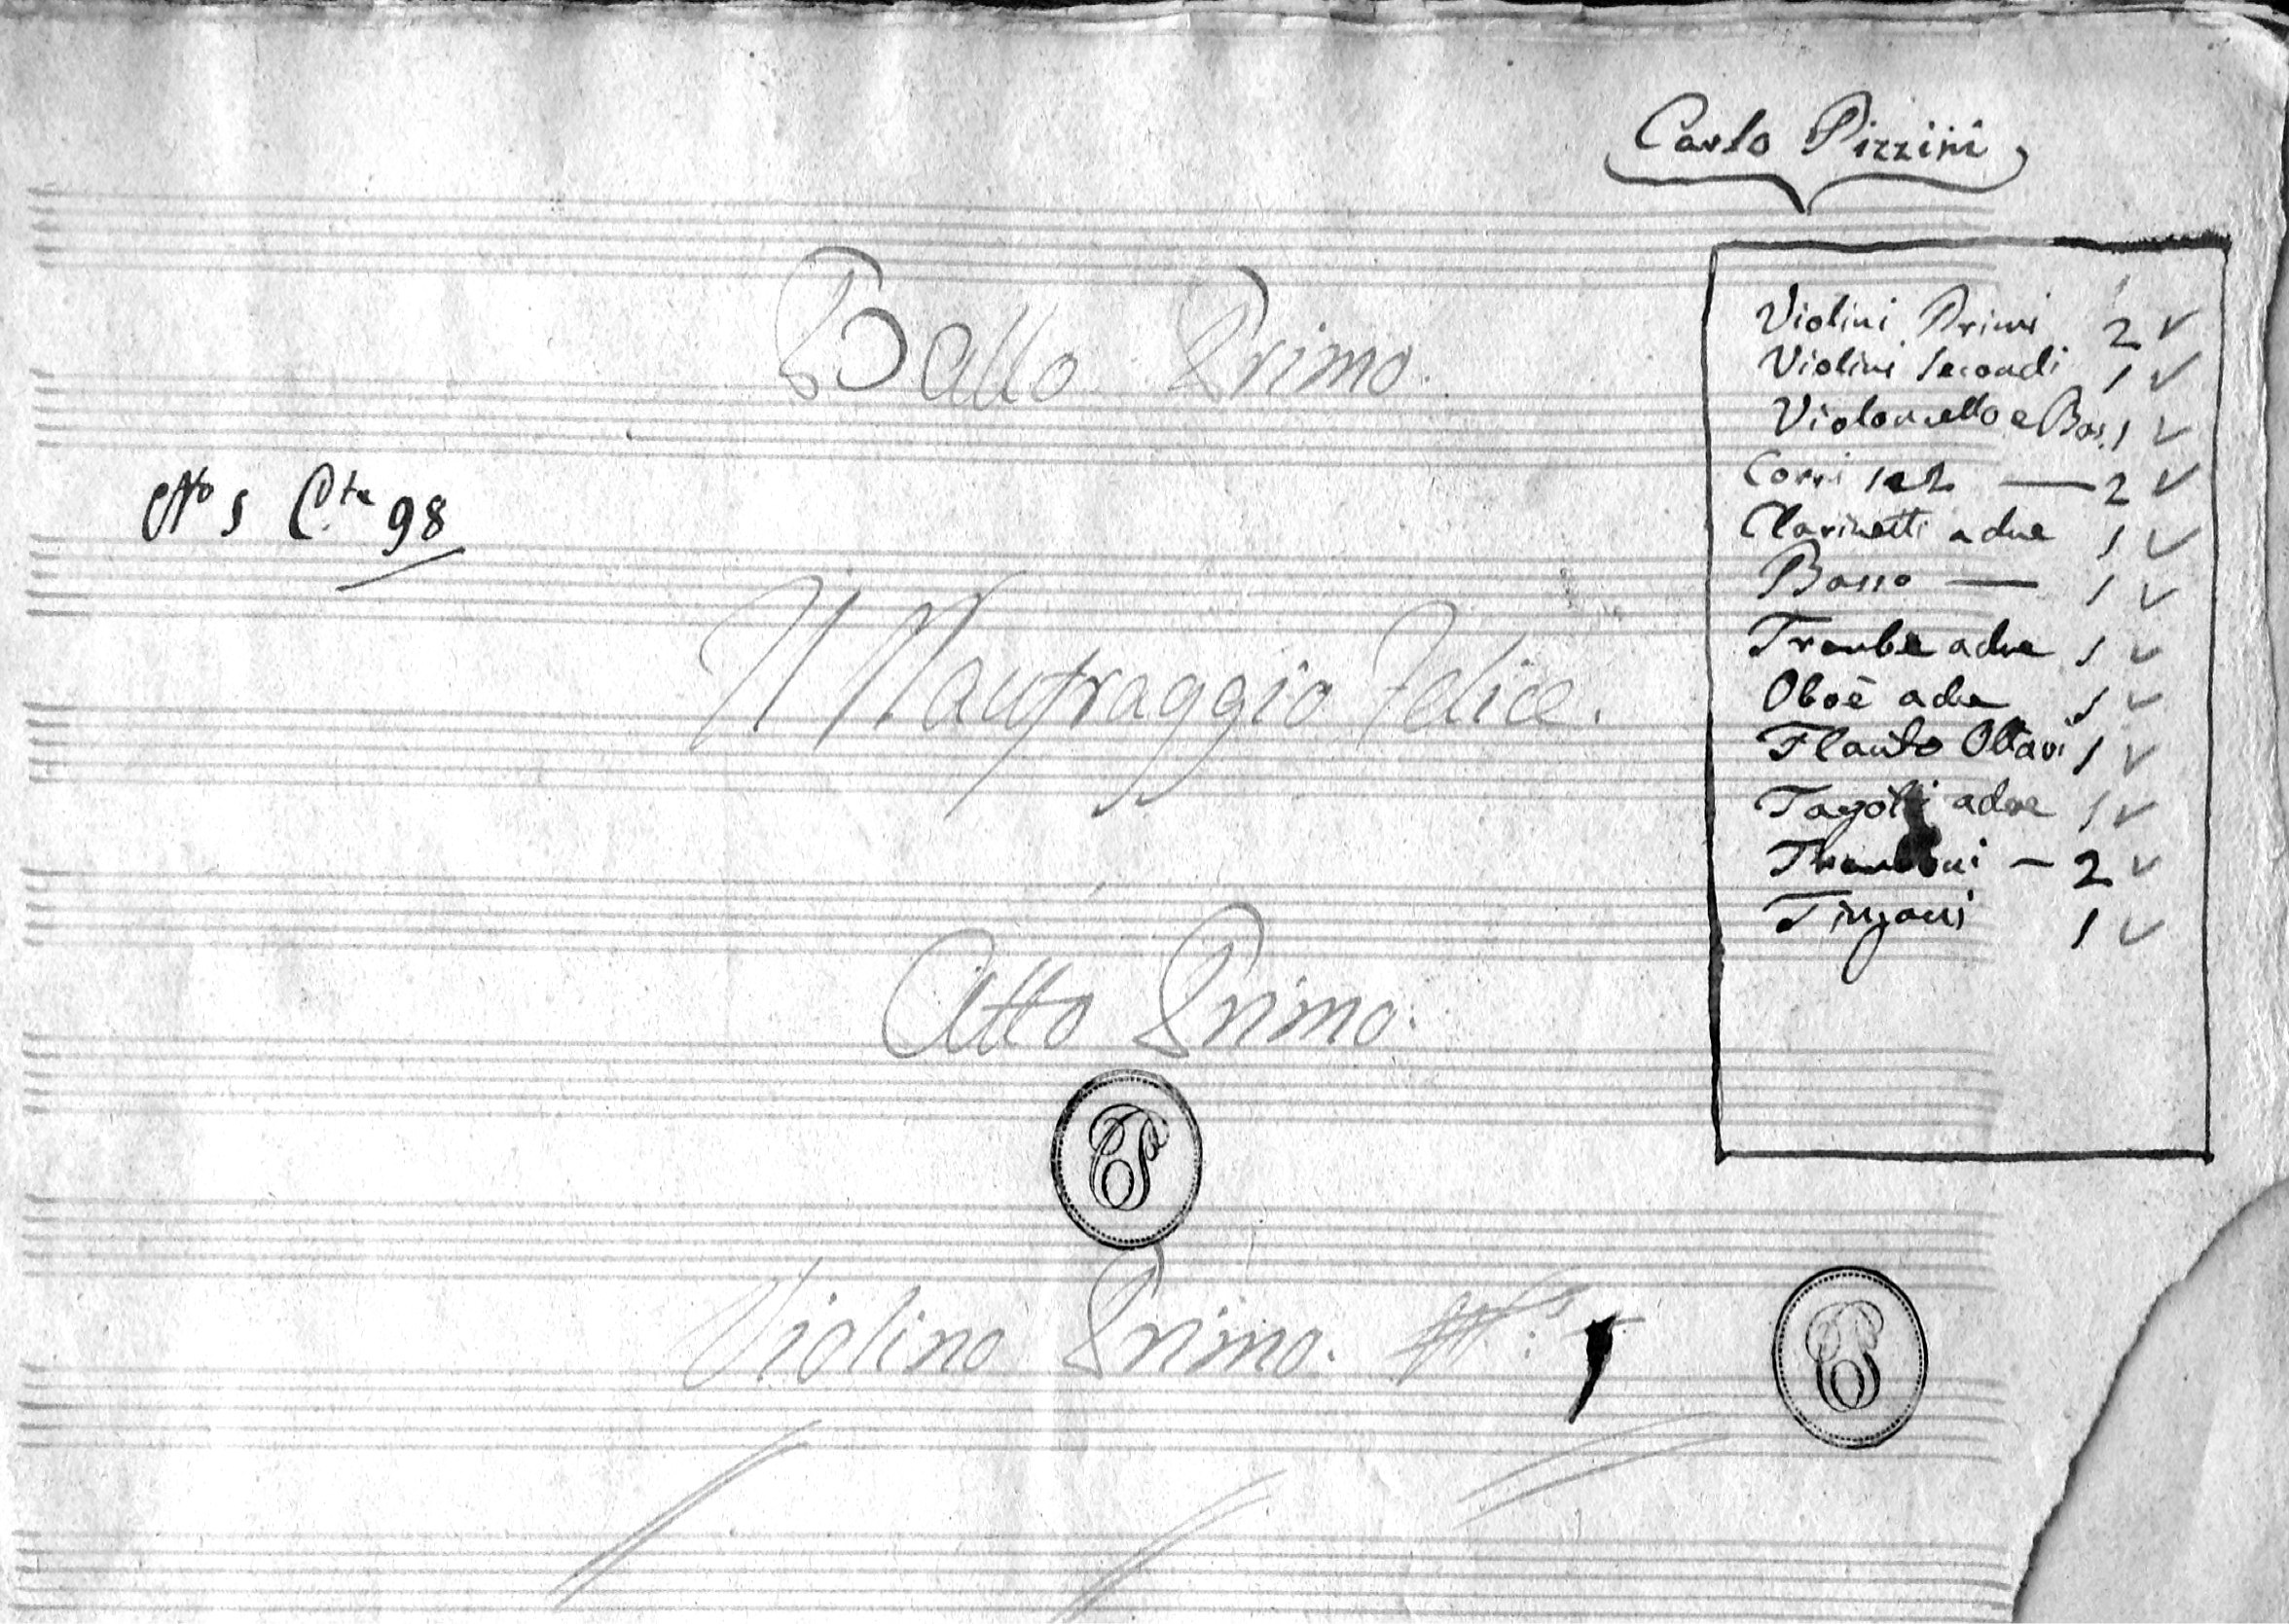 Carlo Pizzini
Ballo Primo.
No 5 Cte 98
Il Naufraggio Felice.
Atto Primo.
Violino Primo.
Violini Primi 2
Violini Secondi 1
Violoncello e Bas. 1
Corni 1 e 2 — 2
Clarinetti a due 1
Basso — 1
Trombe a due 1
Oboè a due 1
Flauto Ottavi 1
Fagotti a due 1
Tromboni — 2
Timpani 1